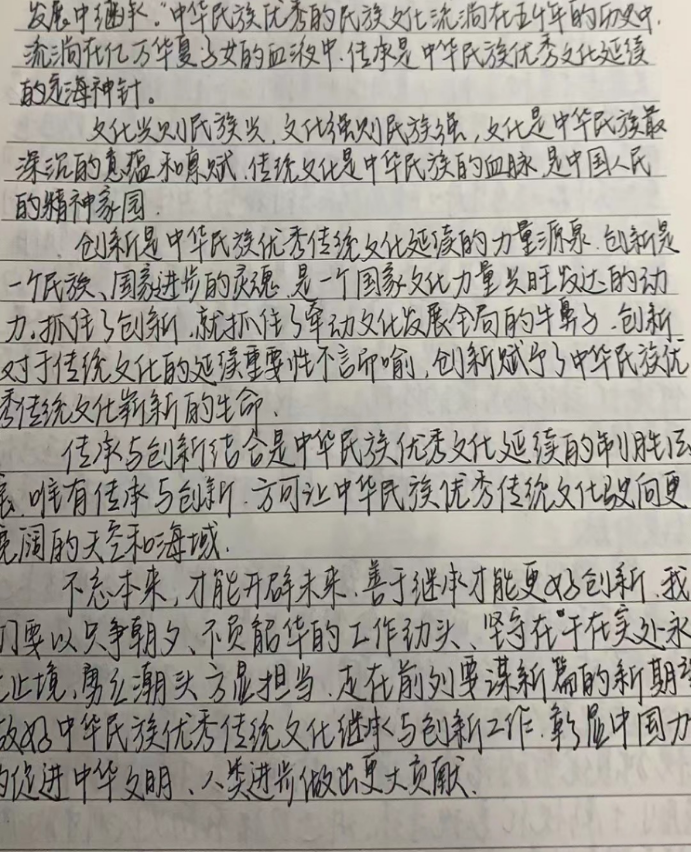 发展中继承。"中华民族优秀的民族文化流淌在五千年的历史中,
流淌在亿万华夏子女的血液中.传承是中华民族优秀文化延续
的定海神针。
文化兴则民族兴,文化强则民族强,文化是中华民族最
深沉的意蕴和禀赋.传统文化是中华民族的血脉,是中国人民
的精神家园.
创新是中华民族优秀传统文化延续的力量源泉.创新是
一个民族、国家进步的灵魂,是一个国家文化力量兴旺发达的动
力.抓住了创新,就抓住了牵动文化发展全局的牛鼻子.创新
对于传统文化的延续重要性不言而喻,创新赋予了中华民族优
秀传统文化崭新的生命.
传承与创新结合是中华民族优秀文化延续的制胜法
宝.唯有传承与创新.方可让中华民族优秀传统文化驶向更
宽阔的天空和海域.
不忘本来,才能开辟未来.善于继承才能更好创新.我
们要以只争朝夕、不负韶华的工作劲头、坚守在干在实处永
无止境,勇立潮头方显担当.走在前列要谋新篇的新期
做好中华民族优秀传统文化继承与创新工作.彰显中国力
促进中华文明、人类进步做出更大贡献.